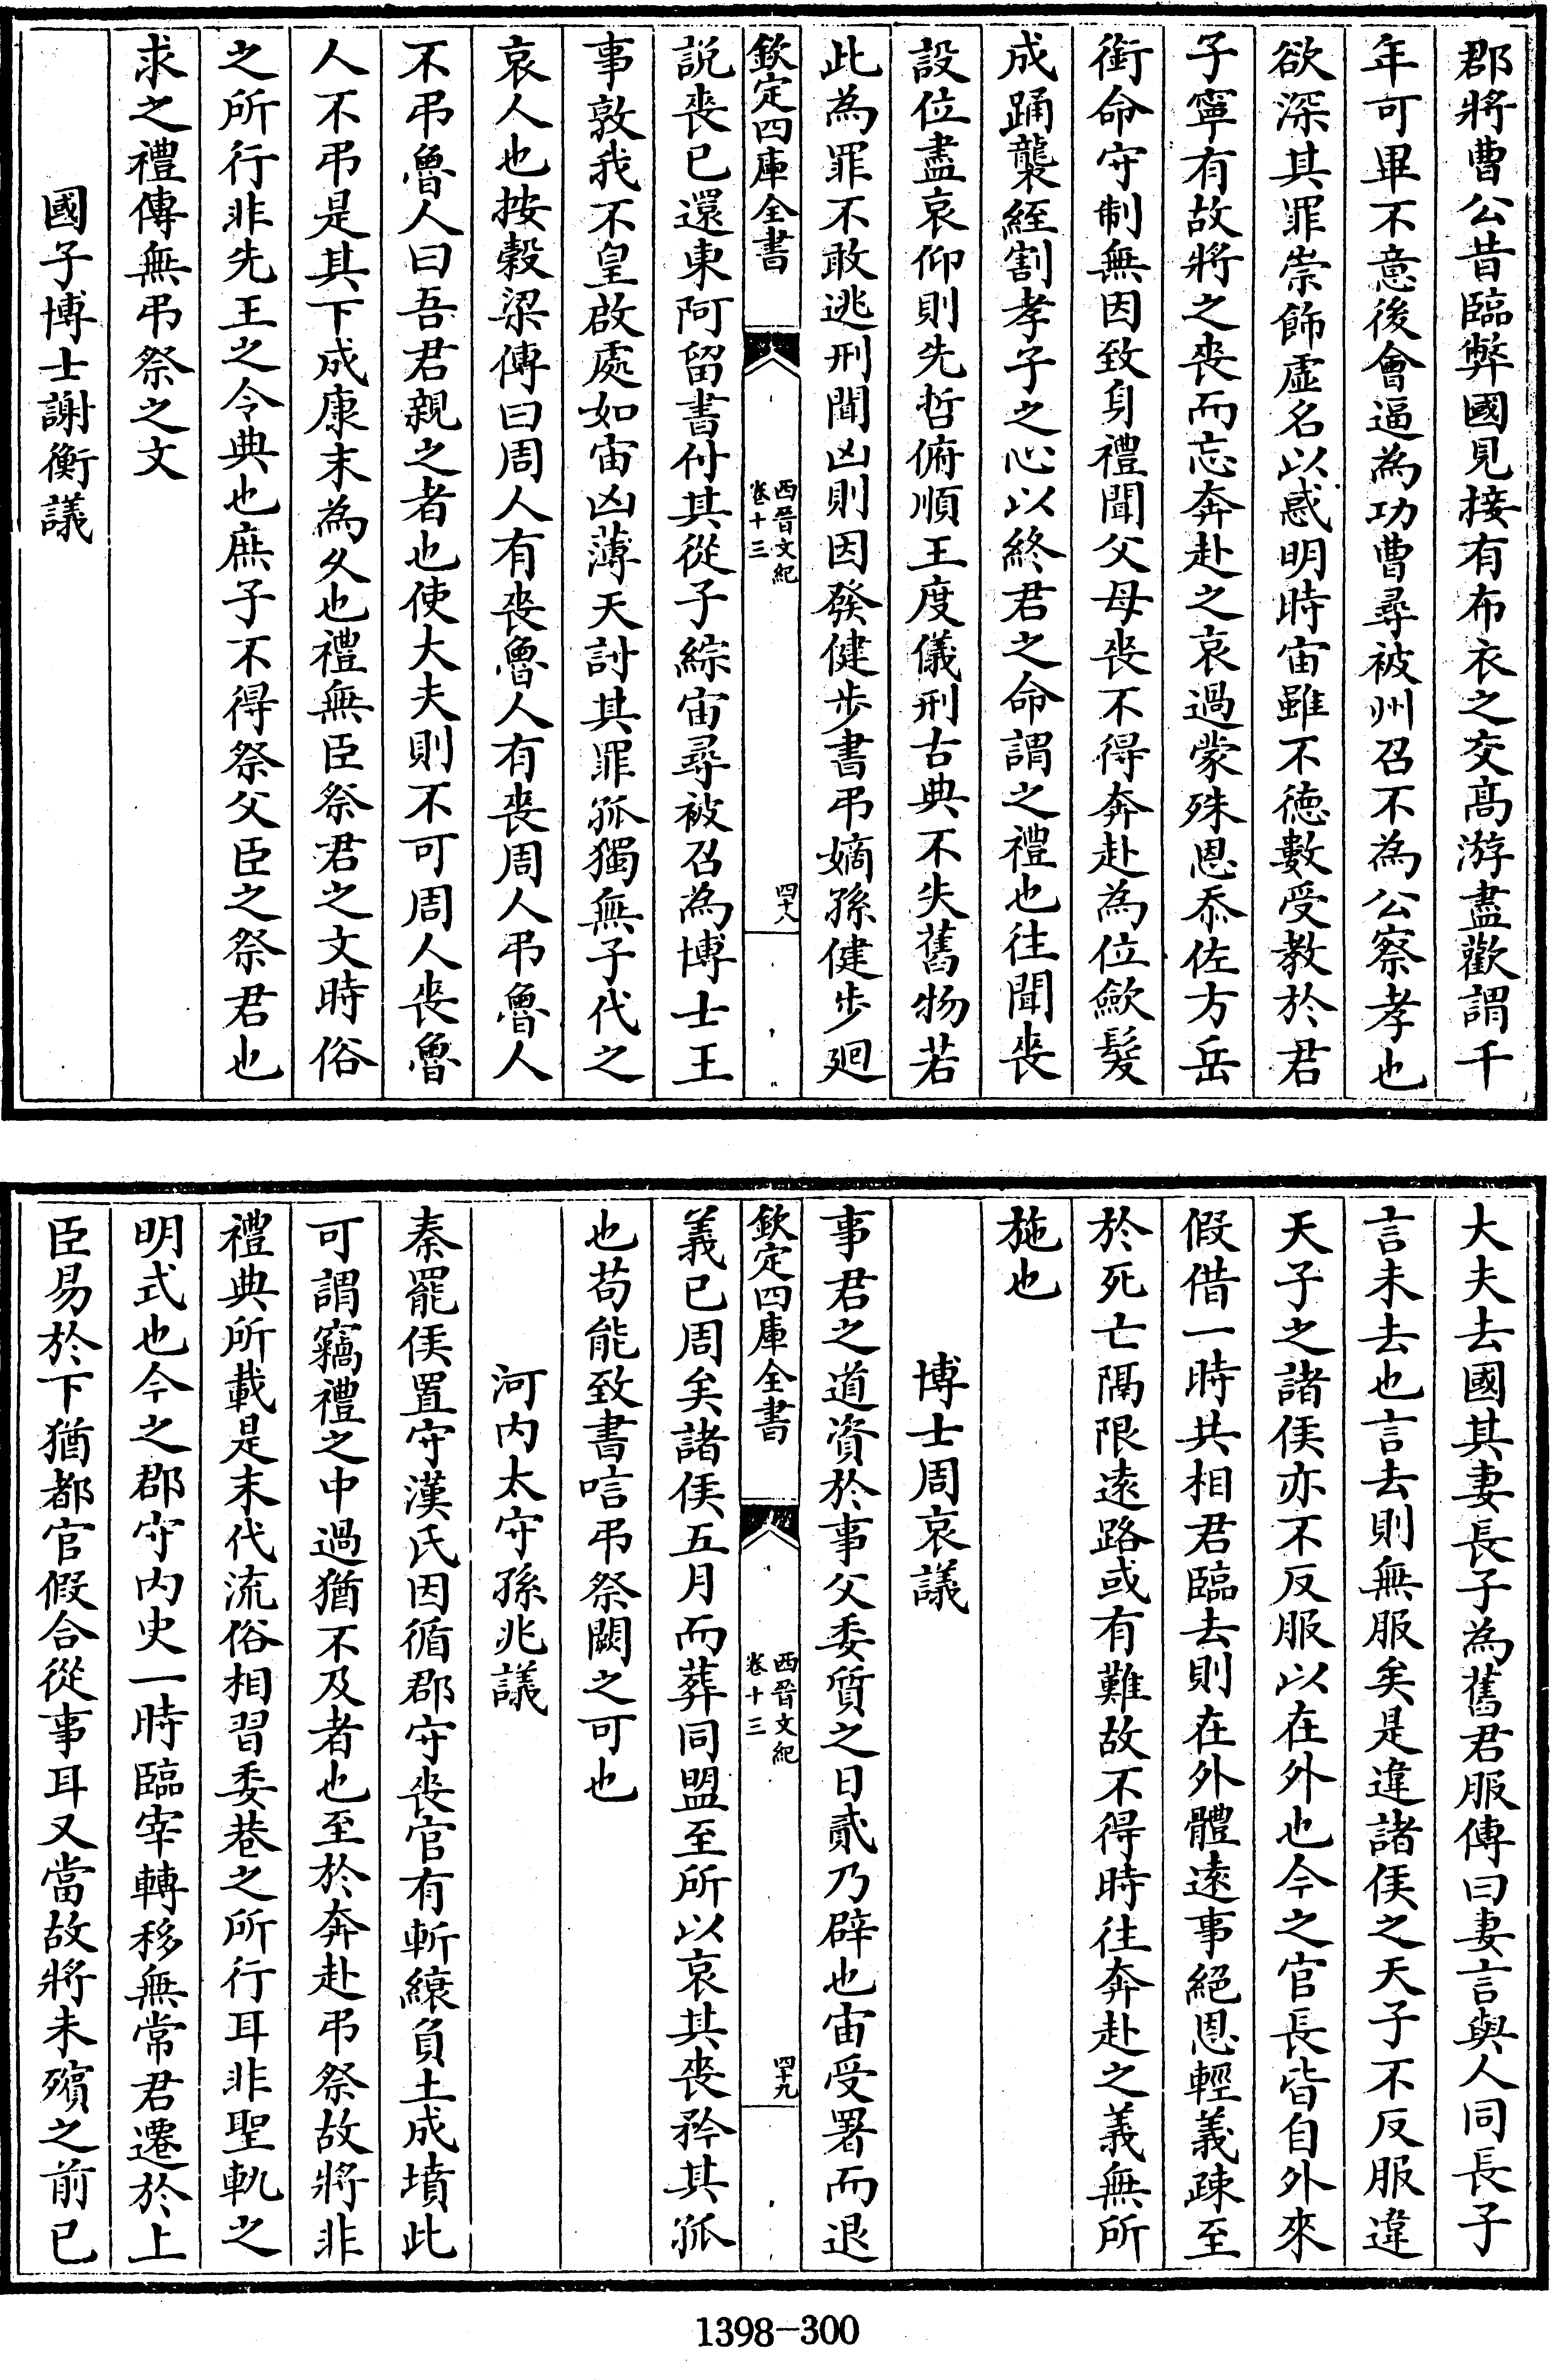 郡將曹公昔臨弊國見接有布衣之交高游盡歡謂千
年可畢不意後會逼為功曹尋被州召不為公察孝也
欲深其罪崇飾虛名以惑明時宙雖不德數受教於君
子寧有故將之喪而忘奔赴之哀過蒙殊恩忝佐方岳
銜命守制無因致身禮聞父母喪不得奔赴為位歛髮
成踊襲絰割孝子之心以終君之命謂之禮也往聞喪
設位盡哀仰則先哲俯順王度儀刑古典不失舊物若
此為罪不敢逃刑聞凶則因發健步書弔嫡孫健步廻
欽定四庫全書
西晉文紀
卷十三
四十八
說喪已還東阿留書付其從子綜宙尋被召為博士王
事敦我不皇啟處如宙凶薄天討其罪孤獨無子代之
哀人也按穀梁傳曰周人有喪魯人有喪周人弔魯人
不弔魯人曰吾君親之者也使大夫則不可周人喪魯
人不弔是其下成康末為久也禮無臣祭君之文時俗
之所行非先王之令典也庶子不得祭父臣之祭君也
求之禮傳無弔祭之文
國子博士謝衡議
大夫去國其妻長子為舊君服傳曰妻言與人同長子
言未去也言去則無服矣是違諸侯之天子不反服違
天子之諸侯亦不反服以在外也今之官長皆自外來
假借一時共相君臨去則在外體遠事絕恩輕義疎至
於死亡隔限遠路或有難故不得時往奔赴之義無所
施也
博士周哀議
事君之道資於事父委質之日貳乃辟也宙受署而退
欽定四庫全書
西晉文紀
卷十三
四十九
義已周矣諸侯五月而葬同盟至所以哀其喪矜其孤
也苟能致書唁弔祭闕之可也
河內太守孫兆議
秦罷侯置守漢氏因循郡守喪官有斬縗負土成墳此
可謂竊禮之中過猶不及者也至於奔赴弔祭故將非
禮典所載是末代流俗相習委巷之所行耳非聖軌之
明式也今之郡守內史一時臨宰轉移無常君遷於上
臣易於下猶都官假合從事耳又當故將未殯之前已
1398-300